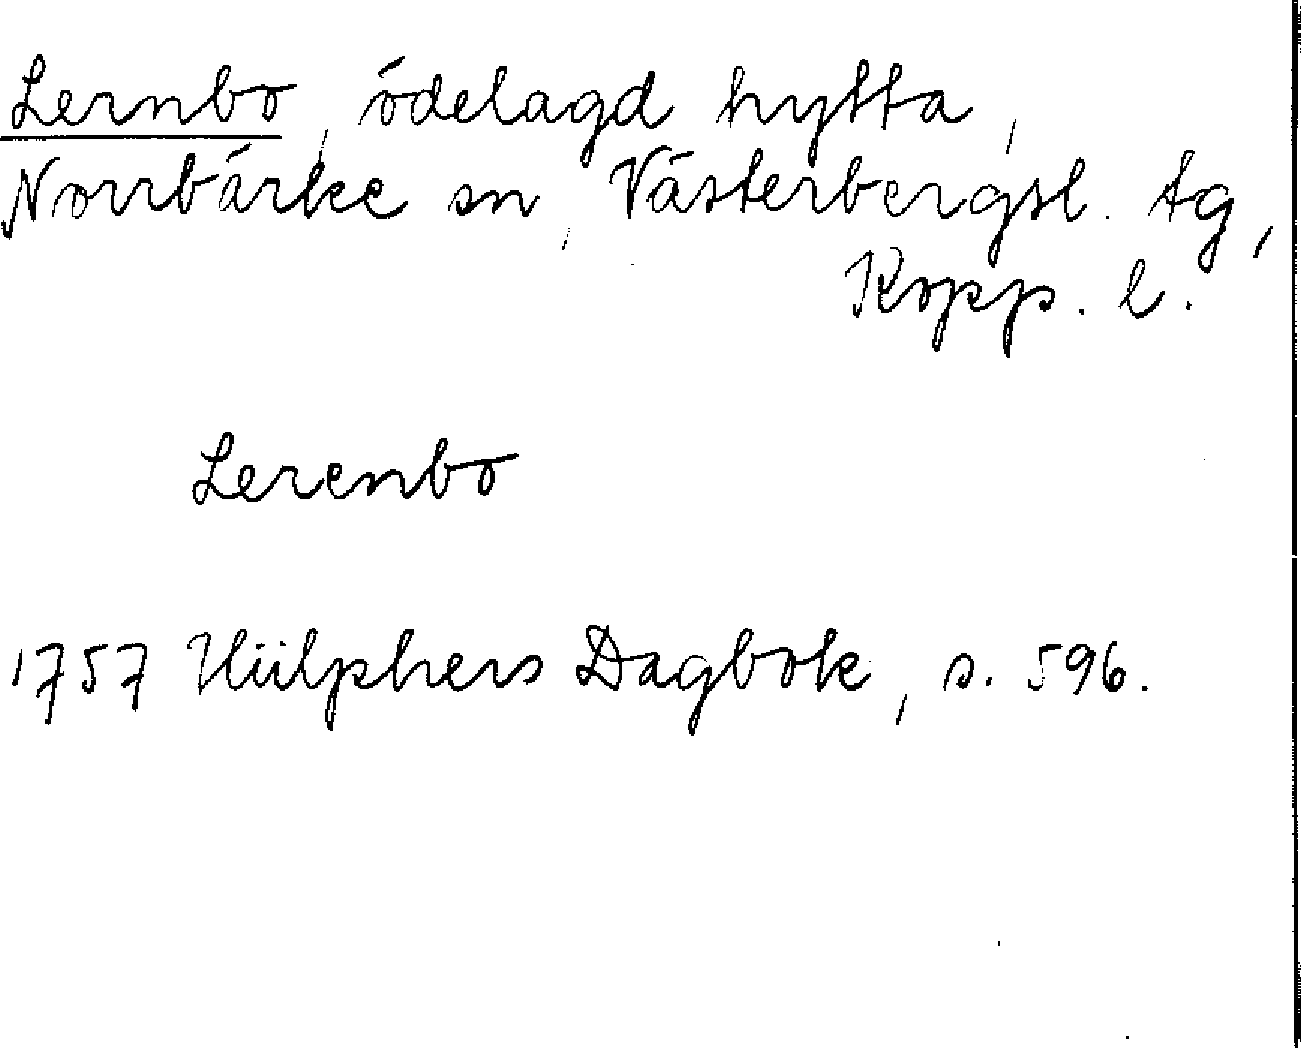 Lernbo, ödelagd hytta,
Norrbärke sn, Västerbergsl. tg,
Kopp. l.
Lerenbo
1757 Hülphers Dagbok, s. 596.